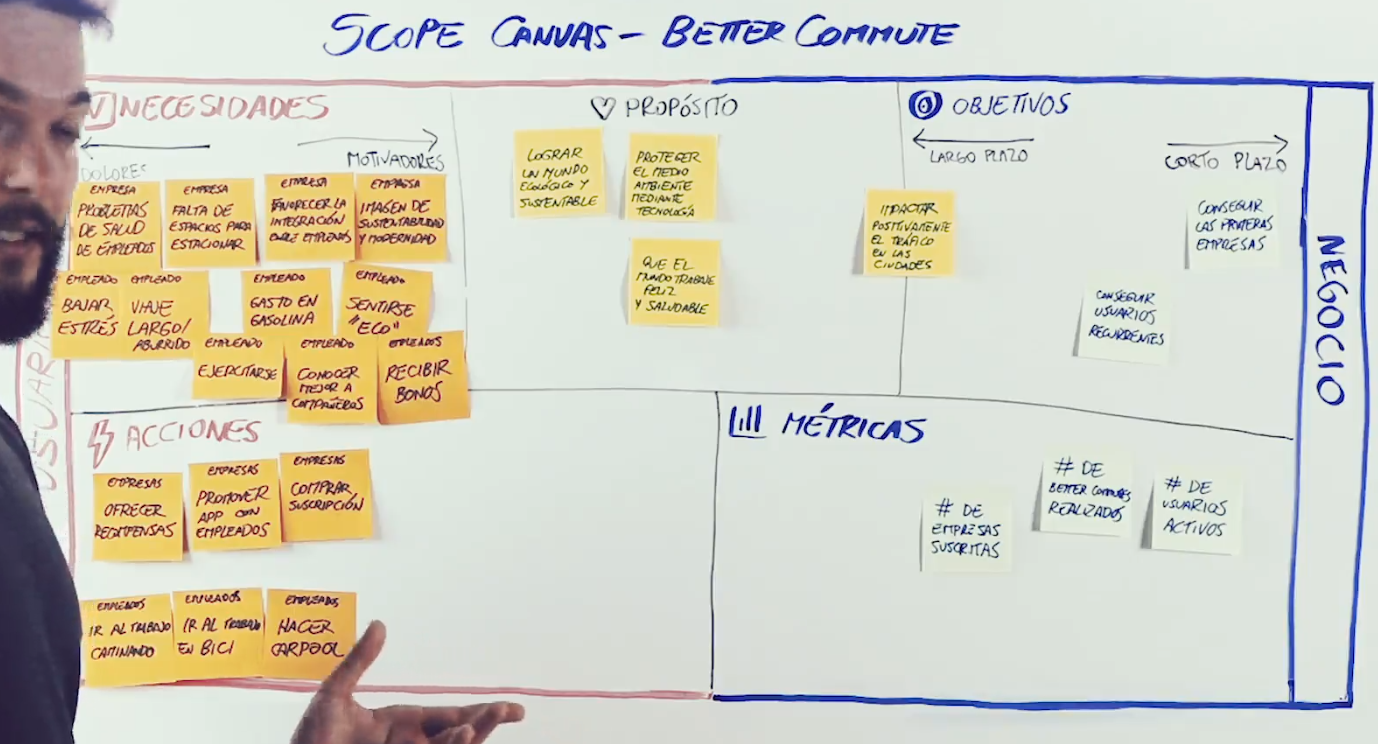 SCOPE CANVAS - BETTER COMMUTE
NECESIDADES
DOLORES
MOTIVADORES
EMPRESA
PROBLEMAS
DE SALUD
DE EMPLEADOS
EMPRESA
FALTA DE
ESPACIOS PARA
ESTACIONAR
EMPRESA
FAVORECER LA
INTEGRACIÓN
ENTRE EMPLEADOS
EMPRESA
IMAGEN DE
SUSTENTABILIDAD
Y MODERNIDAD
EMPLEADO
BAJAR
ESTRÉS
EMPLEADO
VIAJE
LARGO/
ABURRIDO
EMPLEADO
GASTO EN
GASOLINA
EMPLEADO
SENTIRSE
"ECO"
EMPLEADO
EJERCITARSE
EMPLEADO
CONOCER
MEJOR A
COMPAÑEROS
EMPLEADOS
RECIBIR
BONOS
PROPÓSITO
LOGRAR
UN MUNDO
ECOLÓGICO Y
SUSTENTABLE
PROTEGER
EL MEDIO
AMBIENTE
MEDIANTE
TECNOLOGÍA
QUE EL
MUNDO TRABAJE
FELIZ
Y SALUDABLE
OBJETIVOS
LARGO PLAZO
CORTO PLAZO
IMPACTAR
POSITIVAMENTE
EL TRÁFICO
EN LAS
CIUDADES
CONSEGUIR
LAS PRIMERAS
EMPRESAS
CONSEGUIR
USUARIOS
RECURRENTES
NEGOCIO
ACCIONES
EMPRESAS
OFRECER
RECOMPENSAS
EMPRESAS
PROMOVER
APP CON
EMPLEADOS
EMPRESAS
COMPRAR
SUSCRIPCIÓN
EMPLEADOS
IR AL TRABAJO
CAMINANDO
EMPLEADOS
IR AL TRABAJO
EN BICI
EMPLEADOS
HACER
CARPOOL
MÉTRICAS
# DE
EMPRESAS
SUSCRITAS
# DE
BETTER COMMUTES
REALIZADOS
# DE
USUARIOS
ACTIVOS